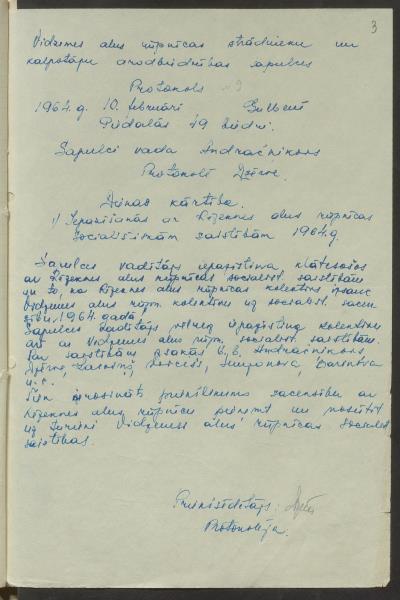 3
Vidzemes alus rūpnīcas strādnieku un
kalpotāju arodbiedrības sapulces
Protokols
1964.g. 10. februārī Gulbenē
Piedalās 49 biedri.
Sapulci vada Andračnikovs
Protokolē Dzērve.
Dienas kārtība.
1) Iepazīšanās ar Rēzeknes alus rūpnīcas
sociālistiskām saistībām 1964.g.
Sapulces vadītājs iepazīstina klātesošos
ar Rēzeknes alus rūpnīcas sociālist. saistībām
un to, ka Rēzeknes alus rūpnīcas kolektīvs izsauc
Vidzemes alus rūpn. kolektīvu uz sociālist. sacen
sību 1964. gadā.
Sapulces vadītājs vēlreiz iepazīstina kolektīvu
arī ar Vidzemes alus rūpn. sociālist. saistībām.
Par saistībām izsakās b.b. Andračnikovs,
Dzērve,
u.c.
Tiek ierosināts priekšlikums sacensību ar
Rēzeknes alus rūpnīcu pieņemt un nosūtīt
uz Vidzemes alus rūpnīcas sociālist.
saistības.
Priekšsēdētājs:
Protokolēja.